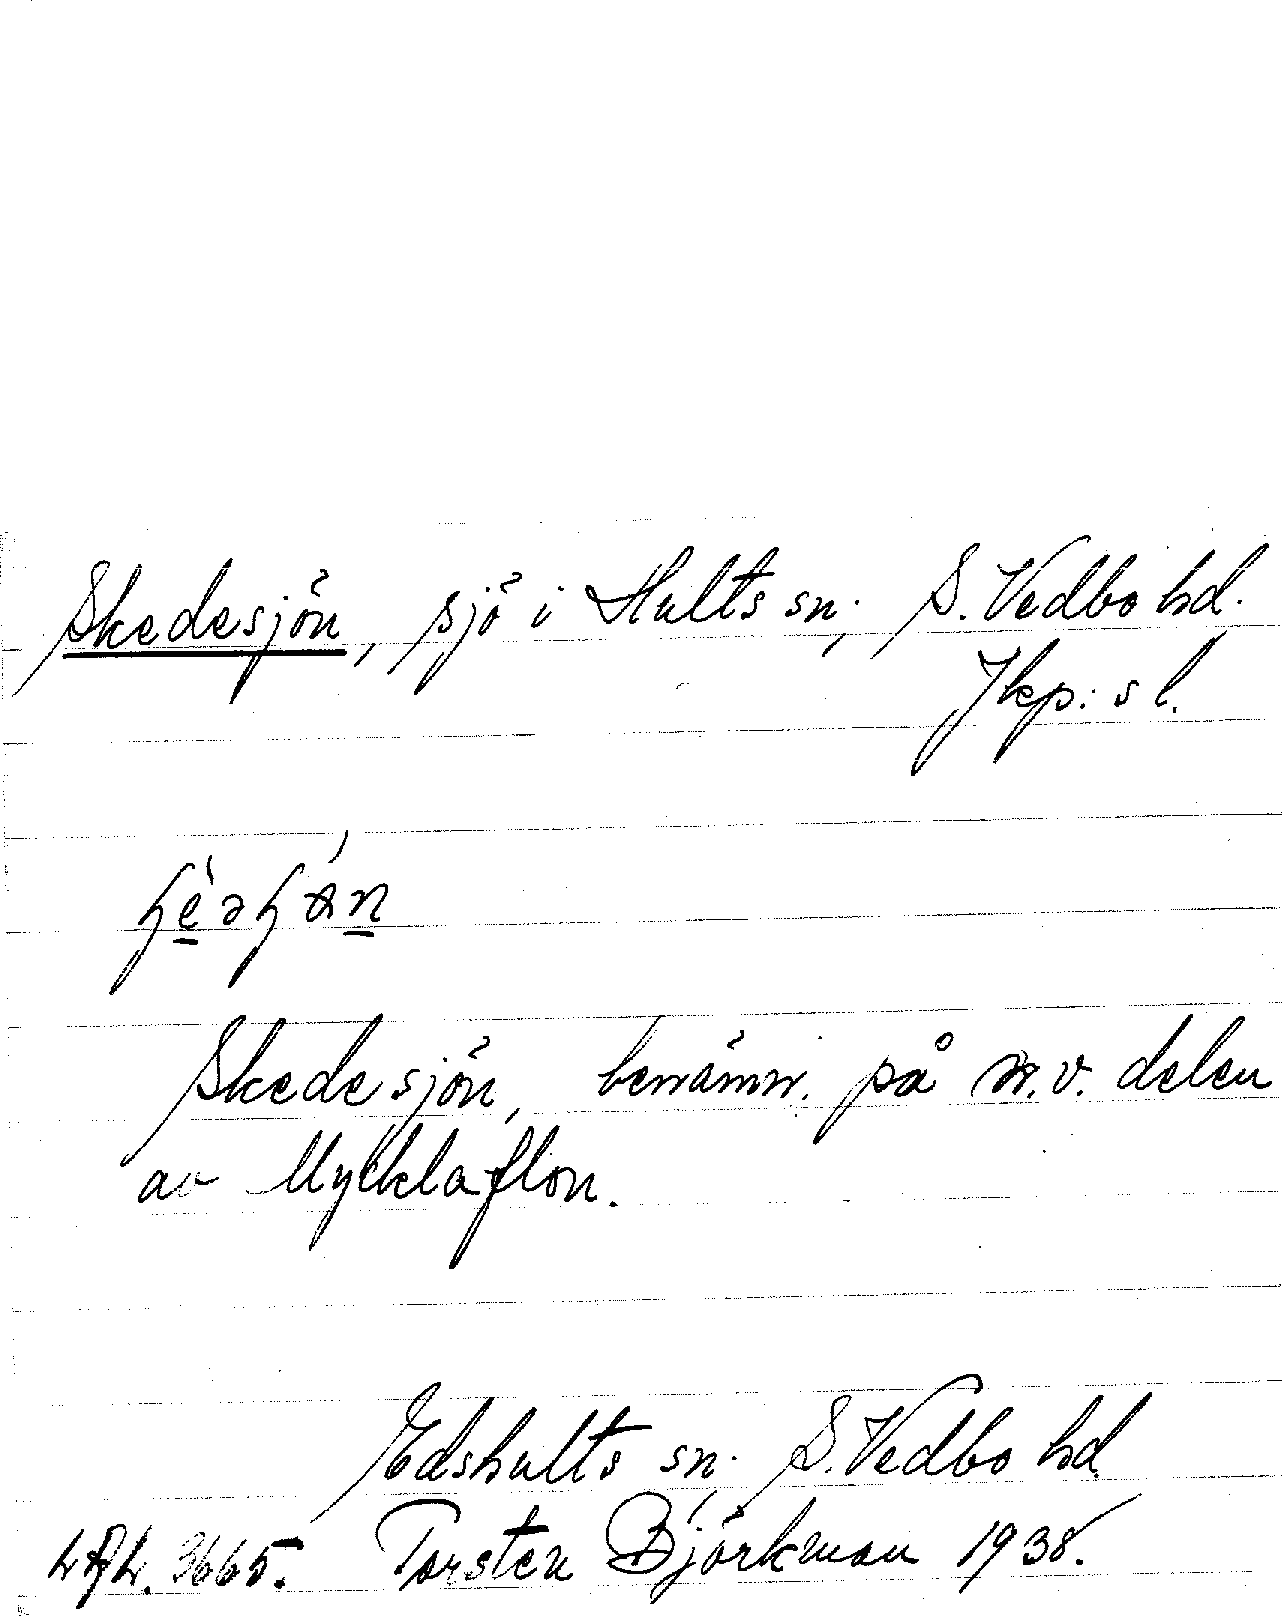 Skedesjön, sjö i Hults sn, S. Vedbo hd.
Jkp:s l.
Skedesjön, benämn. på n.v. delen
av Mycklaflon.
Edshults sn. S. Vedbo hd.
3665. Torsten Björkman 1938.